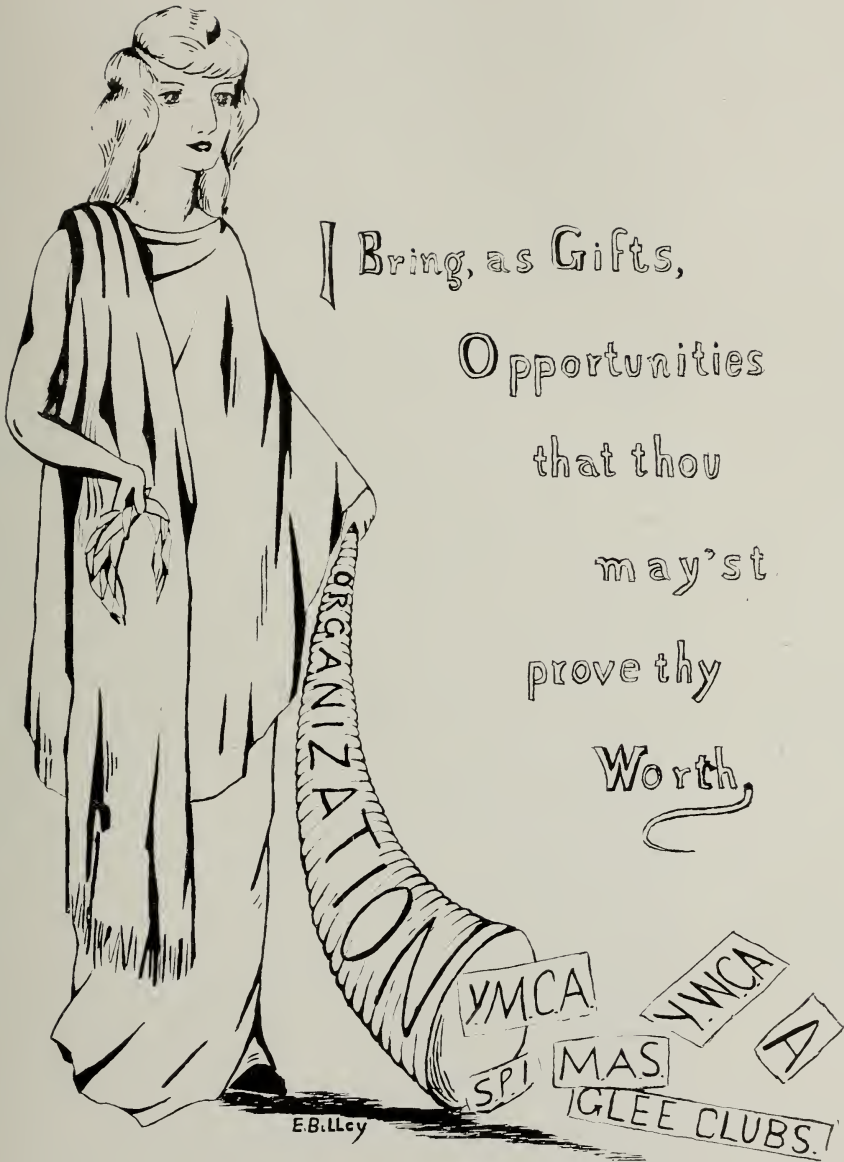 I Bring, as Gifts,
Opportunities
that thou
may'st
prove thy
Worth.
ORGANIZATION
Y.M.C.A.
Y.W.C.A
A
S.P.I.
MAS.
GLEE CLUBS.
E.Billey